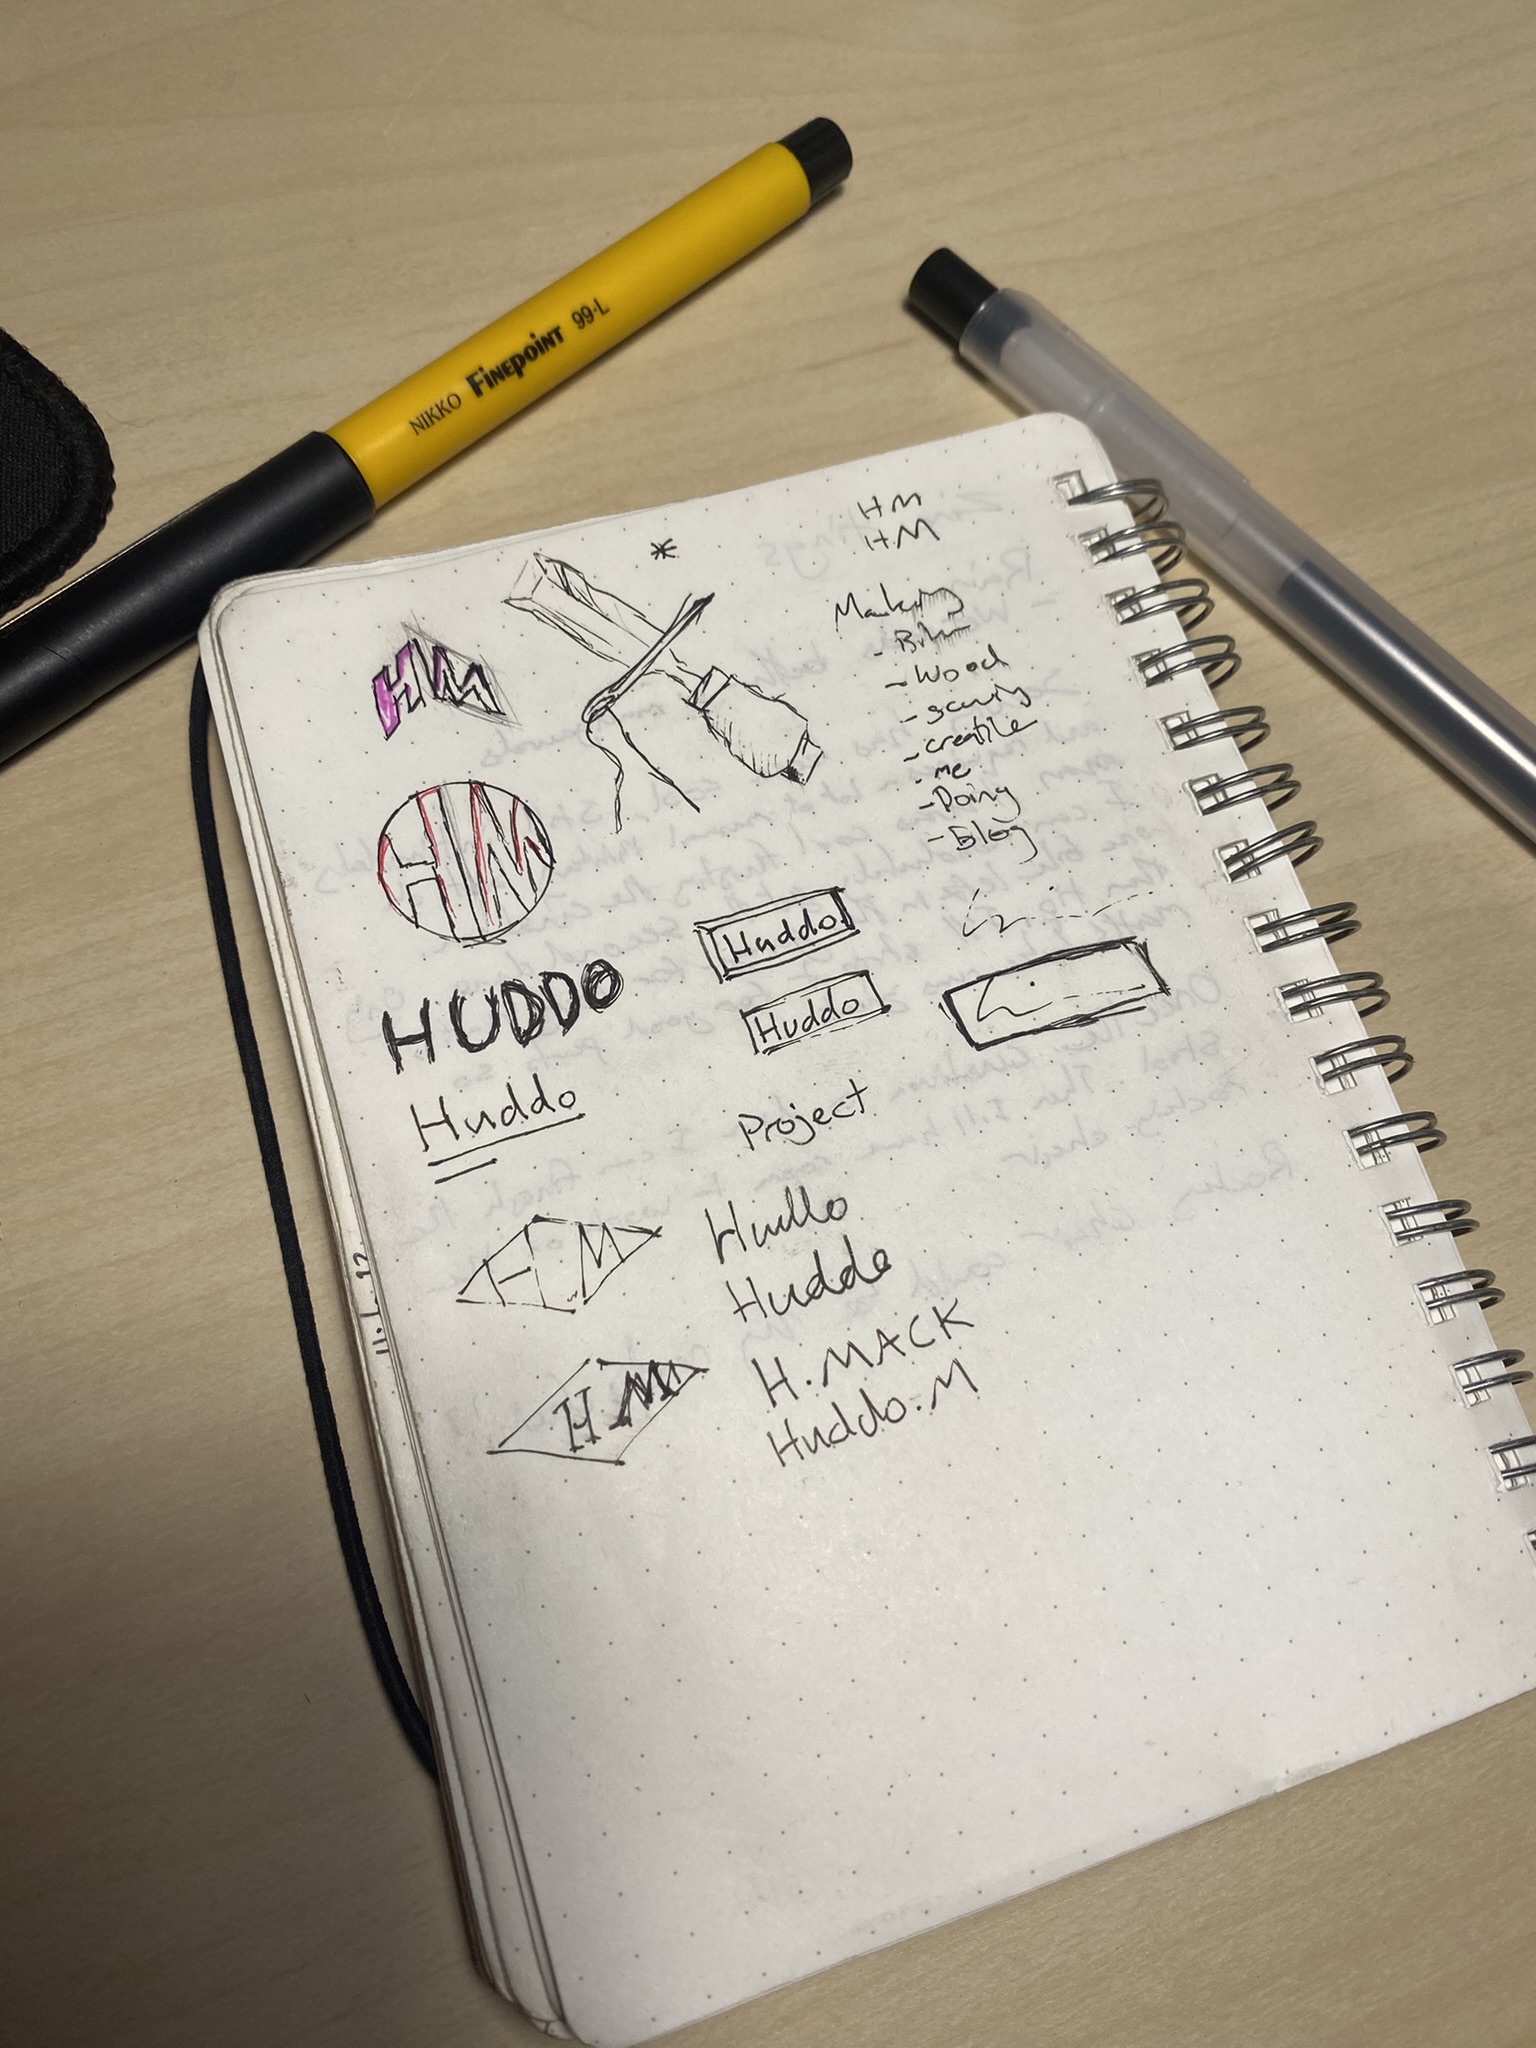 NIKKO Finepoint 99-L
HM
HM
Making
- Wood
- creative
- me
- Doing
- Blog
HM
HM
HUDDO
Huddo
Huddo
Huddo
Project
HM
H M
Hullo
Huddo
H. MACK
Huddo.M